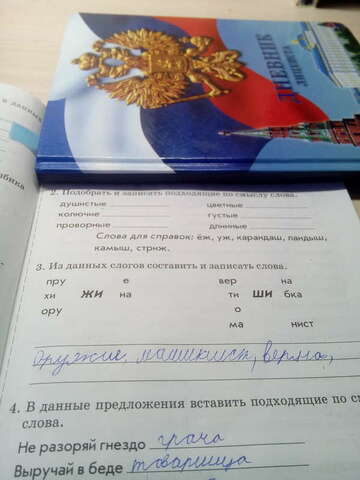 ДНЕВНИК
ЛИЦЕИСТА
в данны
2. Подобрать и записать подходящие по смыслу слова.
душистые цветные
колючие густые
проворные длинные
Слова для справок: ёж, уж, карандаш, ландыш,
камыш, стриж.
3. Из данных слогов составить и записать слова.
пру е вер на
хи ЖИ на ти ШИ бка
ору о
ма нист
оружие, машинист, верши
4. В данные предложения вставить подходящие по
слова.
Не разоряй гнездо грача
Выручай в беде товарища